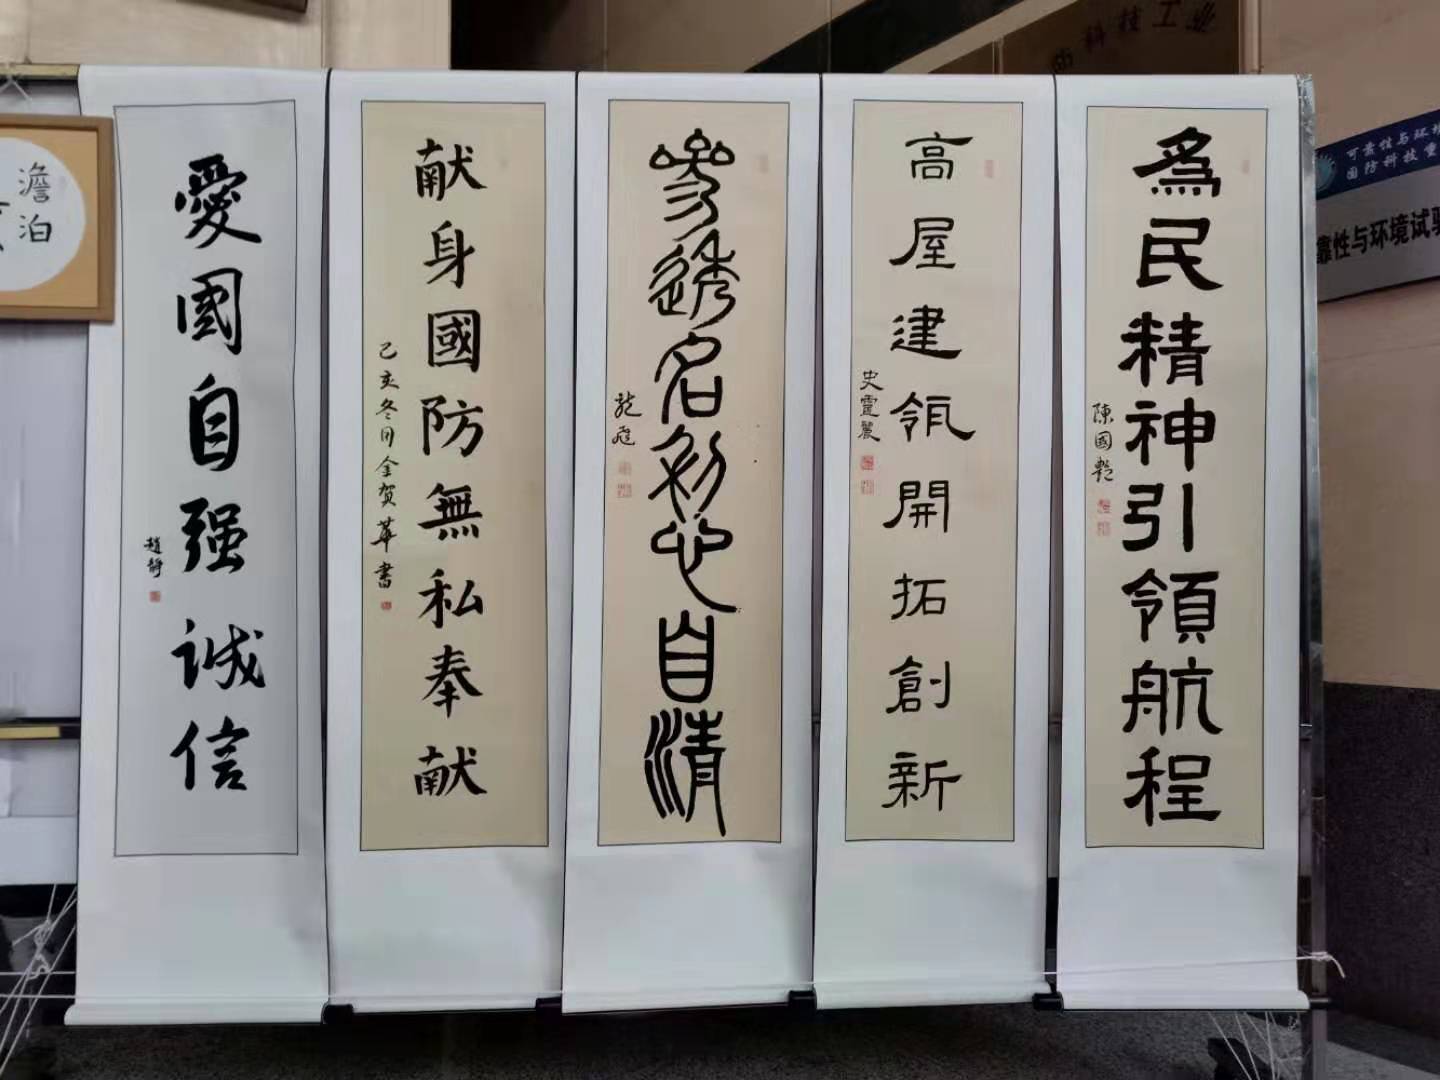 為民精神引領航程
陳國艷
高屋建瓴開拓創新
史霊麗
參透名利心自清
龍飛
献身國防無私奉献
己亥冬月金贺華書
愛國自强誠信
趙靜
澹泊
防科技工业
可靠性与环境
国防科技重
靠性与环境试验